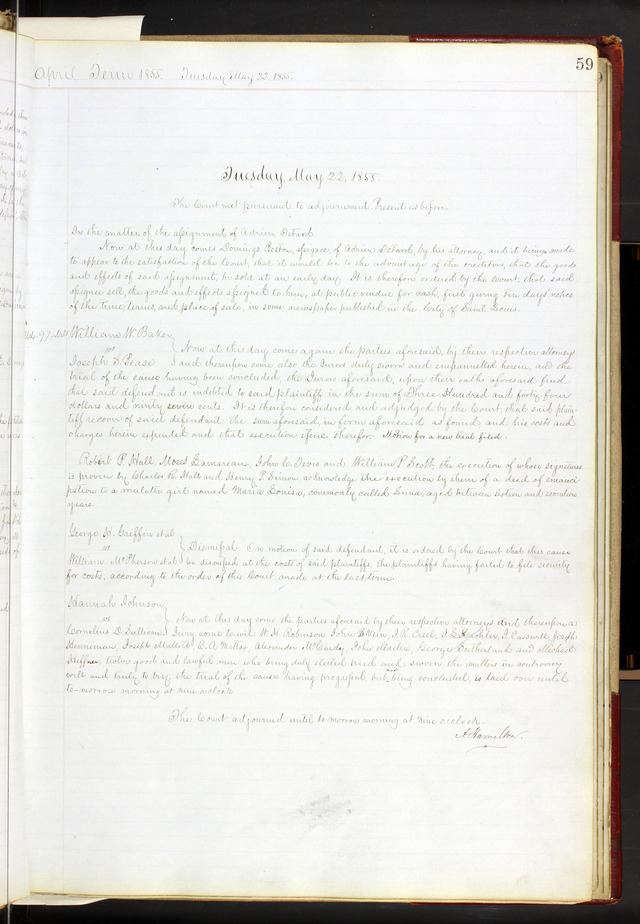 59
April Term 1855. Tuesday May 22, 1855.
Tuesday, May 22, 1855.
The Court met pursuant to adjournment Present as before
In the matter of the assignment of Adrien
Now at this day comes Domingo assignee of Adrien by his attorney and it being made
to appear to the satisfaction of the Court, that it would be to the advantage of the creditors, that the goods
and effects of said assignment, be sold at an early day. It is therefore ordered by the Court, that said
assignee sell, the goods and effects assigned to him, at public vendue for cash, first giving ten days notice
of the time, terms, and place of sale, in some newspaper published in the City of Saint Louis.
97 William W. Baker
vs } Now at this day, come again the parties aforesaid, by their respective attorneys
Joseph Pease and thereupon come also the Jurors duly sworn and empannelled herein, and the
trial of the cause having been concluded, the Jurors aforesaid, upon their oaths aforesaid find
that said defendant is indebted to said plaintiff in the sum of Three Hundred and forty four
dollars and ninety seven cents. It is therefore considered and adjudged by the Court, that said plain-
tiff recover of said defendant the sum aforesaid, in form aforesaid as found and his costs and
charges herein expended and that execution issue therefor. Motion for a new trial filed.
Robert P. Hall, Moses John C. Devis and William P. Scott, the execution of whose signatures
is proven by Charles R. Hall and Henry P. acknowledge the execution by them of a deed of emanci
pation to a mulatto girl named Maria Louisa, commonly called aged between sixteen and seventeen
years.
George H. et al
vs } Dismissal. On motion of said defendant, it is ordered by the Court that this cause
William McPherson et al be dismissed at the costs of said plaintiffs, the plaintiffs having failed to file security
for costs, according to the order of this Court made at the last term.
Hannah Johnson
vs } Now at this day come the parties aforesaid by their respective attorneys and thereupon a
Cornelius D. Sullivan Jury come to wit: W. H. Robinson, John J. R. Creel, J. Casswell, Joseph
Henneman, Joseph Mallett, Alexander McCauley, John George Sutherland and Michael
Heffner, twelve good and lawful men who being duly elected tried and sworn the matters in controversy
well and truly to try, the trial of the cause having progressed, but not being concluded, is laid over until
to-morrow morning at nine o'clock.
The Court adjourned until to morrow morning at nine o'clock.
A Hamilton.